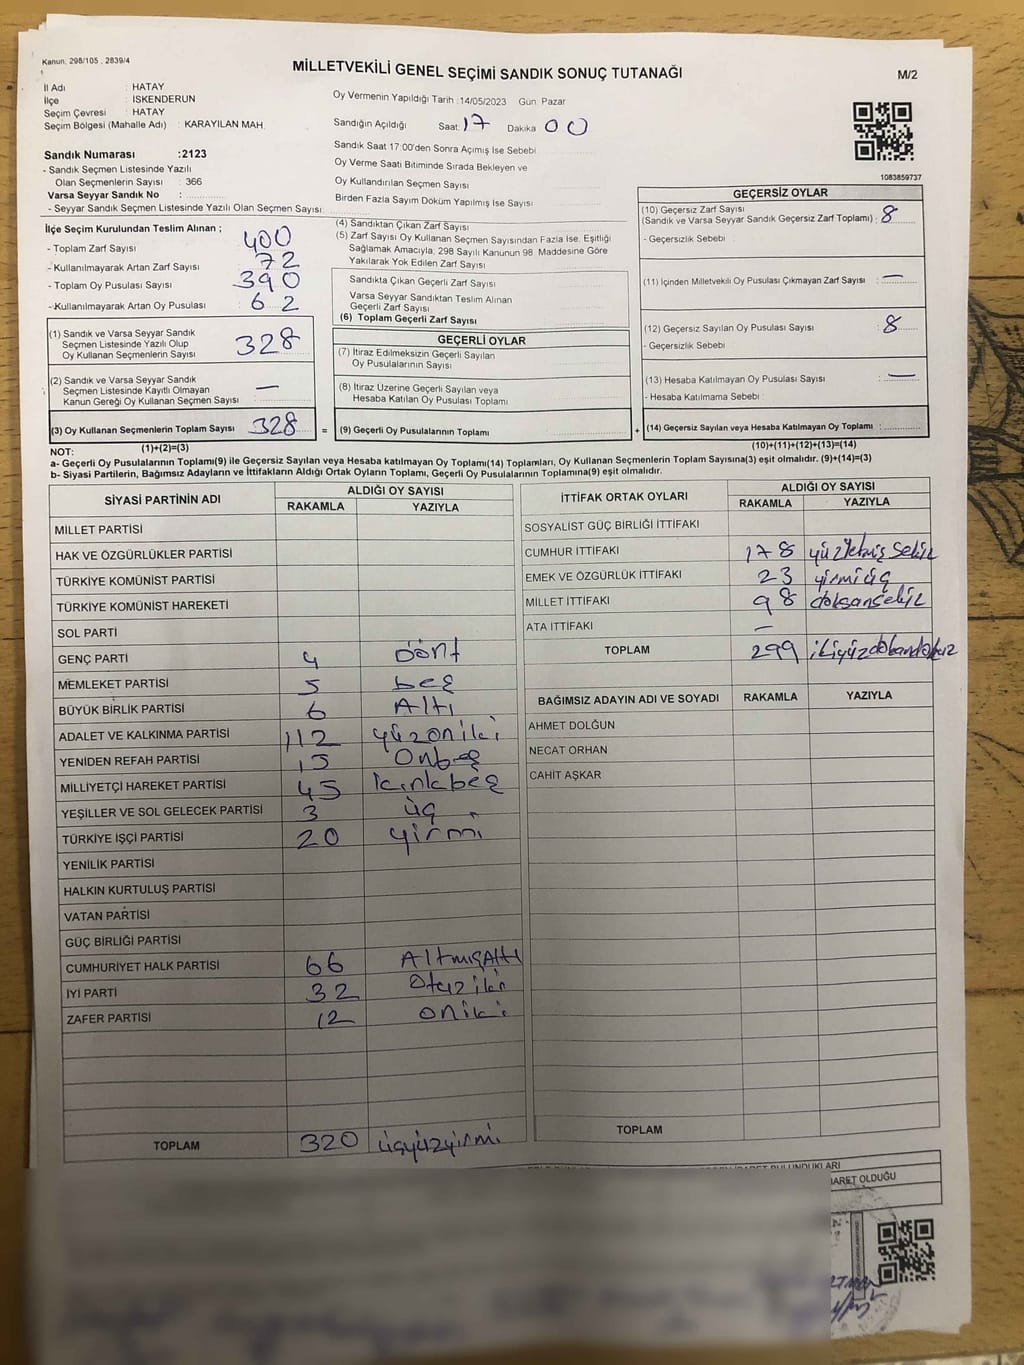 Kanun. 298/105 . 2839/4
MİLLETVEKİLİ GENEL SEÇİMİ SANDIK SONUÇ TUTANAĞI
M/2
İl Adı : HATAY
İlçe : İSKENDERUN
Seçim Çevresi : HATAY
Seçim Bölgesi (Mahalle Adı) : KARAYILAN MAH.
Sandık Numarası :2123
- Sandık Seçmen Listesinde Yazılı
Olan Seçmenlerin Sayısı : 366
Varsa Seyyar Sandık No :
- Seyyar Sandık Seçmen Listesinde Yazılı Olan Seçmen Sayısı:
Oy Vermenin Yapıldığı Tarih :14/05/2023 Gün: Pazar
Sandığın Açıldığı Saat: 17 Dakika 00
Sandık Saat 17:00'den Sonra Açımış İse Sebebi
Oy Verme Saati Bitiminde Sırada Bekleyen ve
Oy Kullandırılan Seçmen Sayısı
Birden Fazla Sayım Döküm Yapılmış İse Sayısı
1083859737
İlçe Seçim Kurulundan Teslim Alınan ;
- Toplam Zarf Sayısı : 400
- Kullanılmayarak Artan Zarf Sayısı : 72
- Toplam Oy Pusulası Sayısı : 390
- Kullanılmayarak Artan Oy Pusulası : 62
(1) Sandık ve Varsa Seyyar Sandık
Seçmen Listesinde Yazılı Olup
Oy Kullanan Seçmenlerin Sayısı : 328
(2) Sandık ve Varsa Seyyar Sandık
Seçmen Listesinde Kayıtlı Olmayan
Kanun Gereği Oy Kullanan Seçmen Sayısı : —
(3) Oy Kullanan Seçmenlerin Toplam Sayısı : 328
(4) Sandıktan Çıkan Zarf Sayısı
(5) Zarf Sayısı Oy Kullanan Seçmen Sayısından Fazla İse, Eşitliği
Sağlamak Amacıyla, 298 Sayılı Kanunun 98. Maddesine Göre
Yakılarak Yok Edilen Zarf Sayısı
Sandıkta Çıkan Geçerli Zarf Sayısı
Varsa Seyyar Sandıktan Teslim Alınan
Geçerli Zarf Sayısı
(6) Toplam Geçerli Zarf Sayısı
GEÇERLİ OYLAR
(7) İtiraz Edilmeksizin Geçerli Sayılan
Oy Pusulalarının Sayısı
(8) İtiraz Üzerine Geçerli Sayılan veya
Hesaba Katılan Oy Pusulası Toplamı
= (9) Geçerli Oy Pusulalarının Toplamı
GEÇERSİZ OYLAR
(10) Geçersiz Zarf Sayısı
(Sandık ve Varsa Seyyar Sandık Geçersiz Zarf Toplamı) : 8
- Geçersizlik Sebebi :
(11) İçinden Milletvekili Oy Pusulası Çıkmayan Zarf Sayısı : —
(12) Geçersiz Sayılan Oy Pusulası Sayısı : 8
- Geçersizlik Sebebi :
(13) Hesaba Katılmayan Oy Pusulası Sayısı : —
- Hesaba Katılmama Sebebi :
+ (14) Geçersiz Sayılan veya Hesaba Katılmayan Oy Toplamı :
NOT: (1)+(2)=(3) (10)+(11)+(12)+(13)=(14)
a- Geçerli Oy Pusulalarının Toplamı(9) ile Geçersiz Sayılan veya Hesaba Katılmayan Oy Toplamı(14) Toplamları, Oy Kullanan Seçmenlerin Toplam Sayısına(3) eşit olmalıdır. (9)+(14)=(3)
b- Siyasi Partilerin, Bağımsız Adayların ve İttifakların Aldığı Ortak Oyların Toplamı, Geçerli Oy Pusulalarının Toplamına(9) eşit olmalıdır.
SİYASİ PARTİNİN ADI ALDIĞI OY SAYISI
RAKAMLA YAZIYLA
MİLLET PARTİSİ
HAK VE ÖZGÜRLÜKLER PARTİSİ
TÜRKİYE KOMÜNİST PARTİSİ
TÜRKİYE KOMÜNİST HAREKETİ
SOL PARTİ
GENÇ PARTİ 4 Dört
MEMLEKET PARTİSİ 5 beş
BÜYÜK BİRLİK PARTİSİ 6 Altı
ADALET VE KALKINMA PARTİSİ 112 yüzoniki
YENİDEN REFAH PARTİSİ 15 Onbeş
MİLLİYETÇİ HAREKET PARTİSİ 45 kırkbeş
YEŞİLLER VE SOL GELECEK PARTİSİ 3 üç
TÜRKİYE İŞÇİ PARTİSİ 20 yirmi
YENİLİK PARTİSİ
HALKIN KURTULUŞ PARTİSİ
VATAN PARTİSİ
GÜÇ BİRLİĞİ PARTİSİ
CUMHURİYET HALK PARTİSİ 66 Altmışaltı
İYİ PARTİ 32 Otuziki
ZAFER PARTİSİ 12 oniki
TOPLAM 320 üçyüzyirmi
İTTİFAK ORTAK OYLARI ALDIĞI OY SAYISI
RAKAMLA YAZIYLA
SOSYALİST GÜÇ BİRLİĞİ İTTİFAKI
CUMHUR İTTİFAKI 178 yüzyetmiş sekiz
EMEK VE ÖZGÜRLÜK İTTİFAKI 23 yirmiüç
MİLLET İTTİFAKI 98 doksansekiz
ATA İTTİFAKI —
TOPLAM 299 ikiyüzdoksandokuz
BAĞIMSIZ ADAYIN ADI VE SOYADI RAKAMLA YAZIYLA
AHMET DOLĞUN
NECAT ORHAN
CAHİT AŞKAR
TOPLAM
BULUNDUKLARI
OLDUĞU